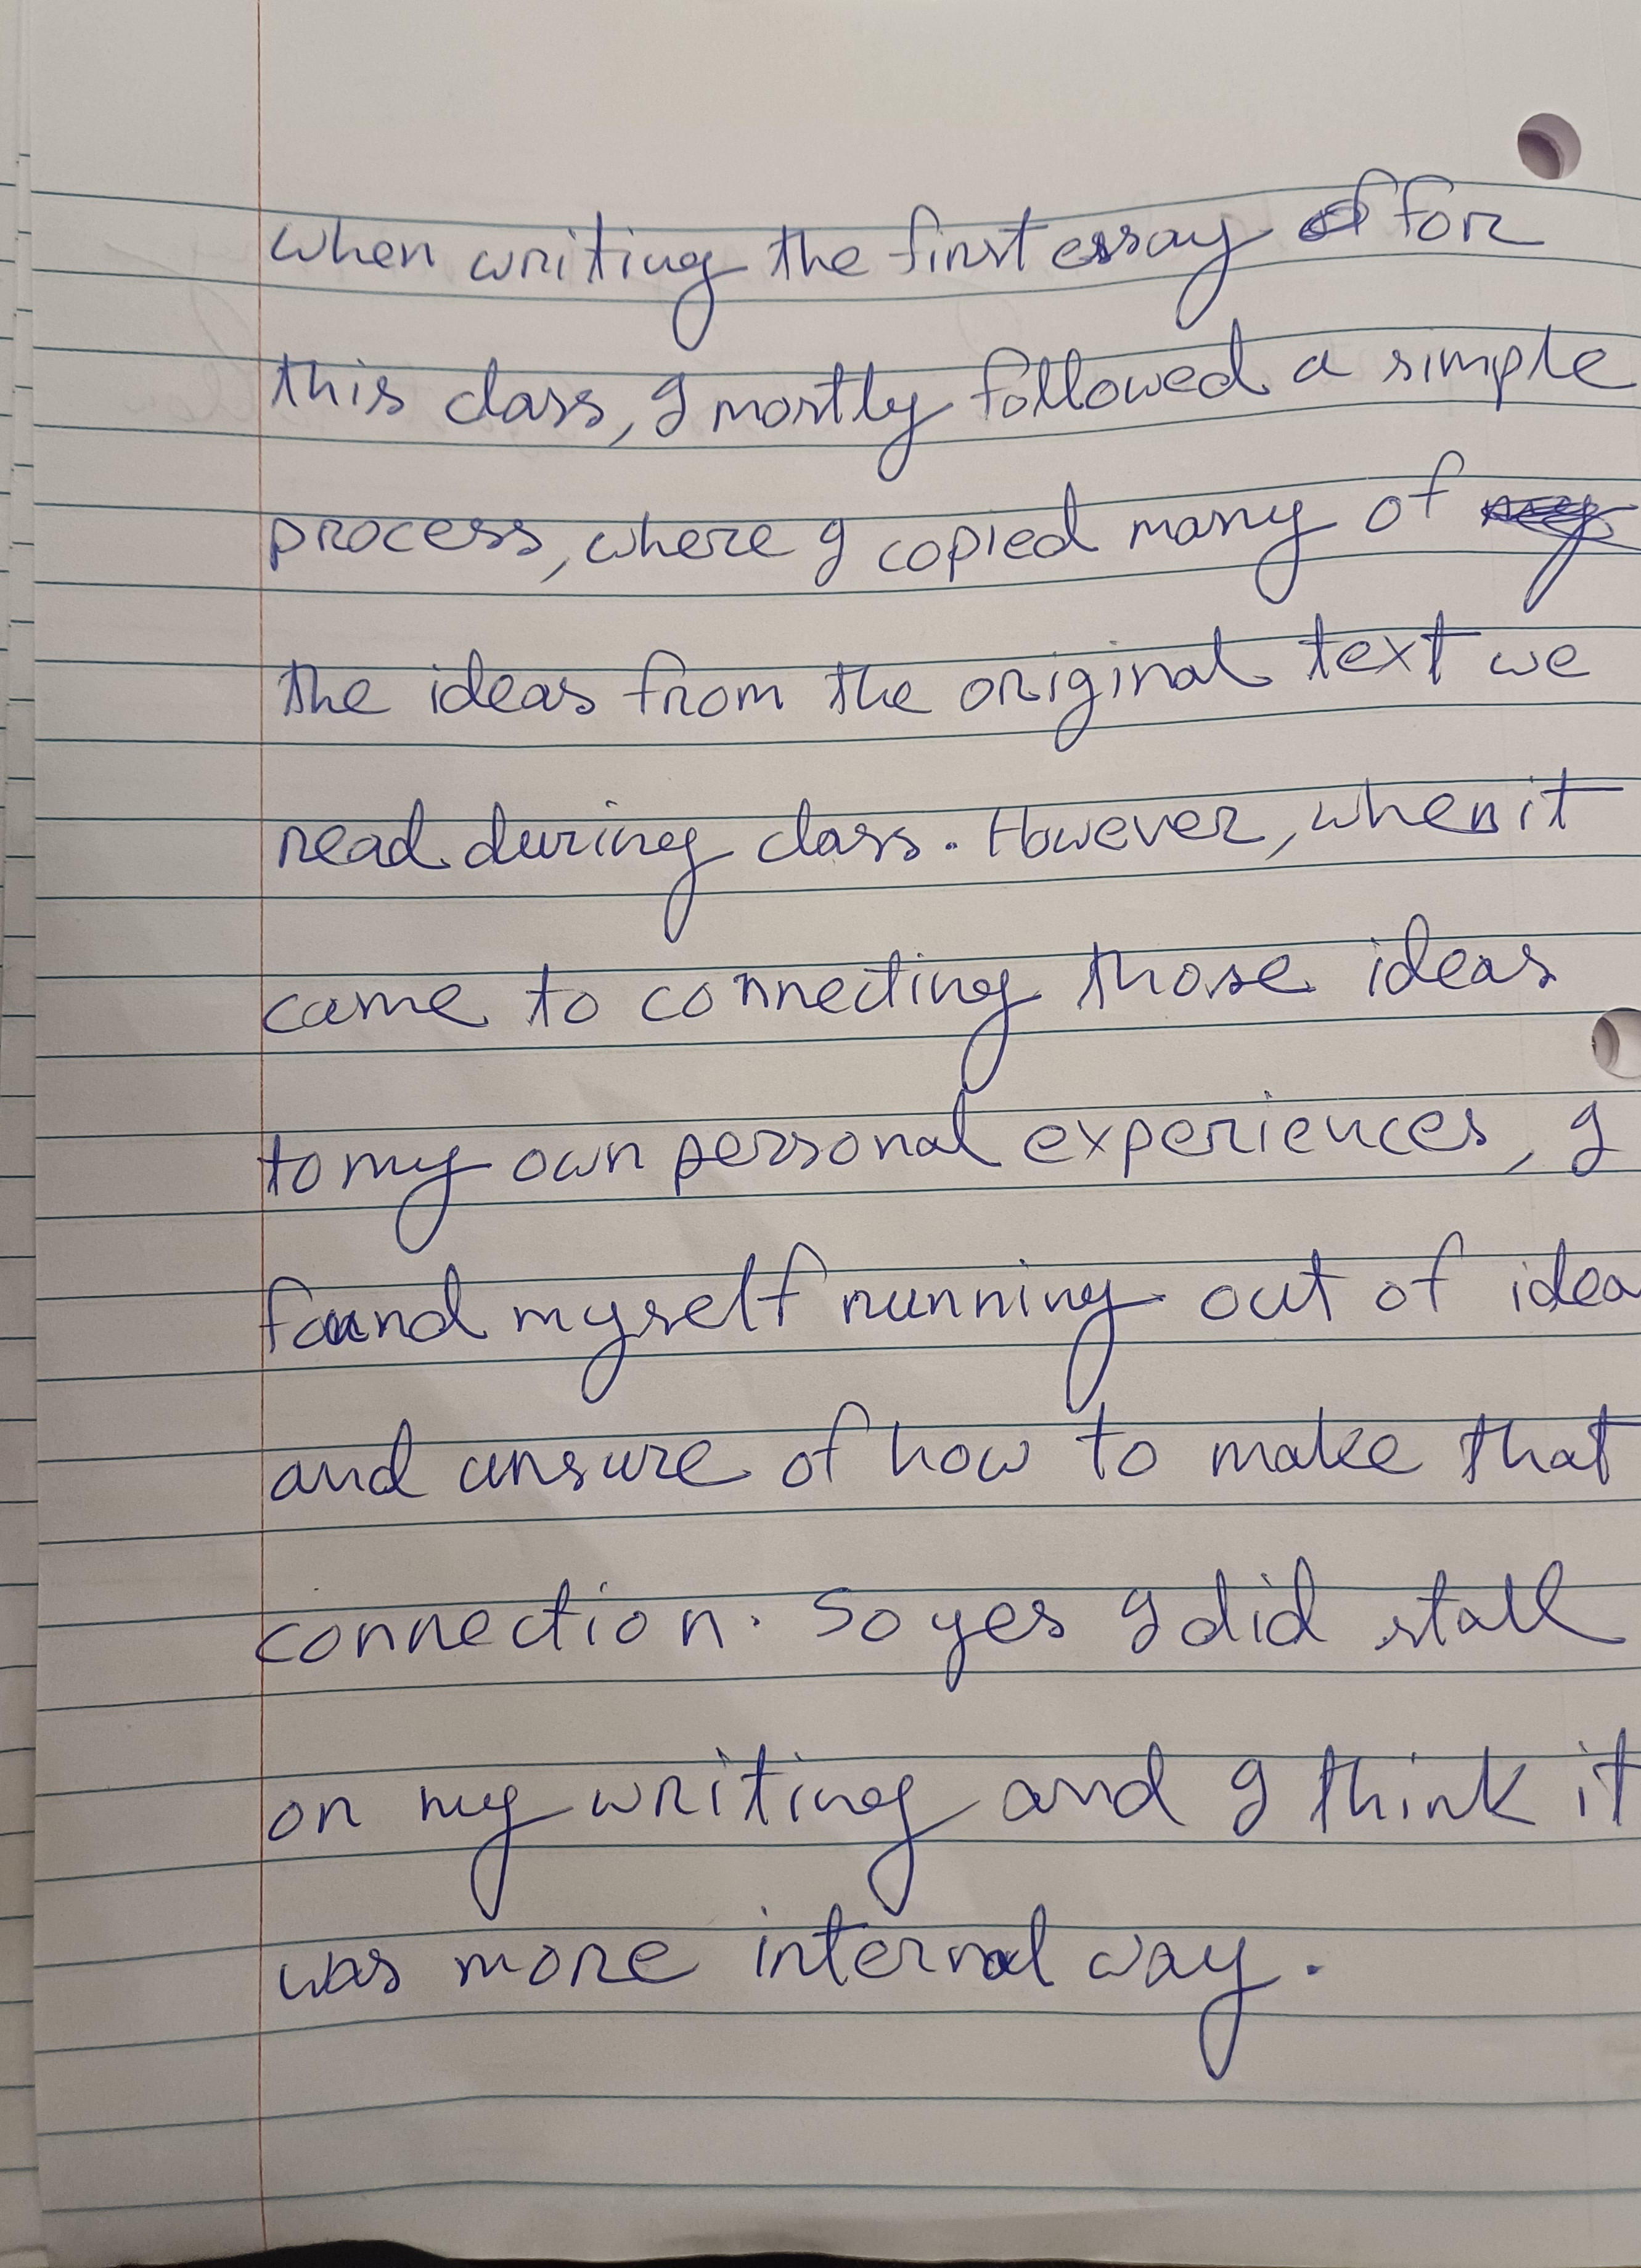 when writing the first essay for
this class, I mostly followed a simple
process, where I copied many of
the ideas from the original text we
read during class. However, when it
came to connecting those ideas
to my own personal experiences, I
found myself running out of idea
and unsure of how to make that
connection. So yes I did stall
on my writing and I think it
was more internal way.